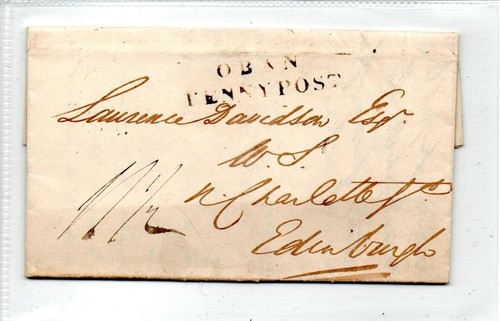 OBAN
PENNY POST
Laurence Davidson Esqr.
W.S.
N. Charlotte St
Edinburgh
11½